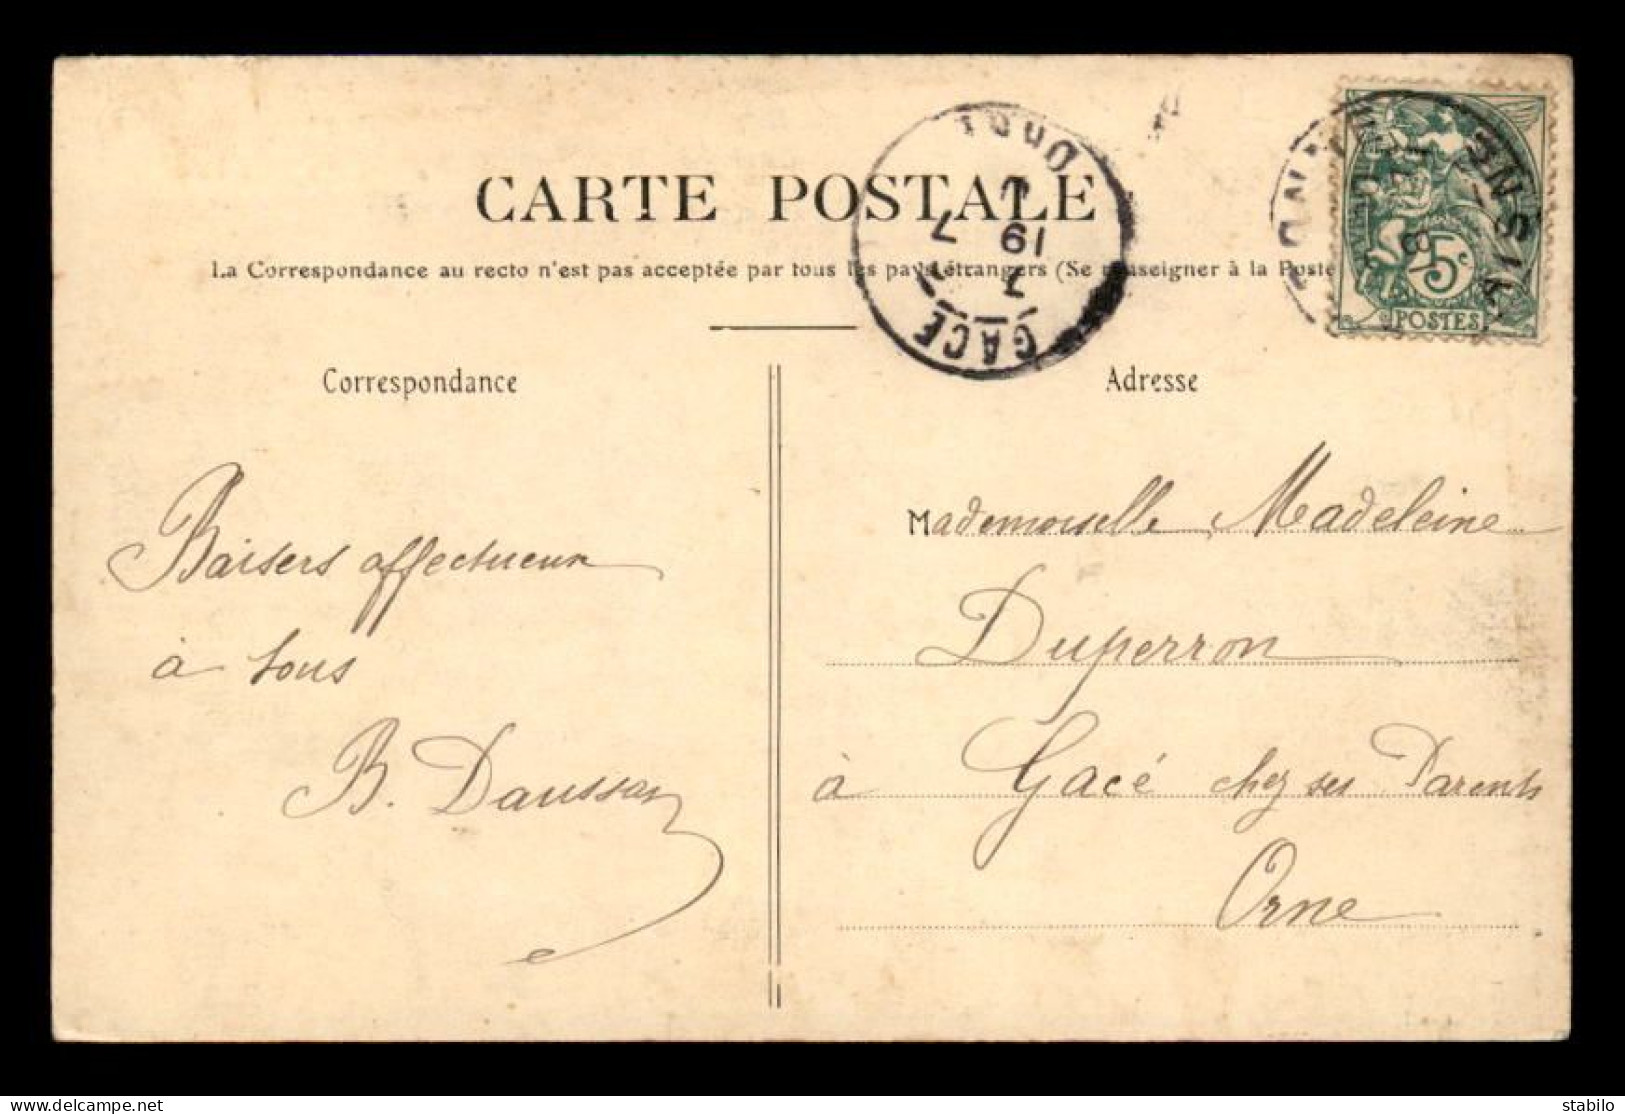 CARTE POSTALE
La Correspondance au recto n'est pas acceptée par tous les pays étrangers (Se renseigner à la Poste
5c
POSTES
GACE
19
7
Correspondance
Adresse
Baisers affectueux
à tous
B. Daussan
Mademoiselle Madeleine
Duperron
à Gacé chez ses Parents
Orne
stabilo